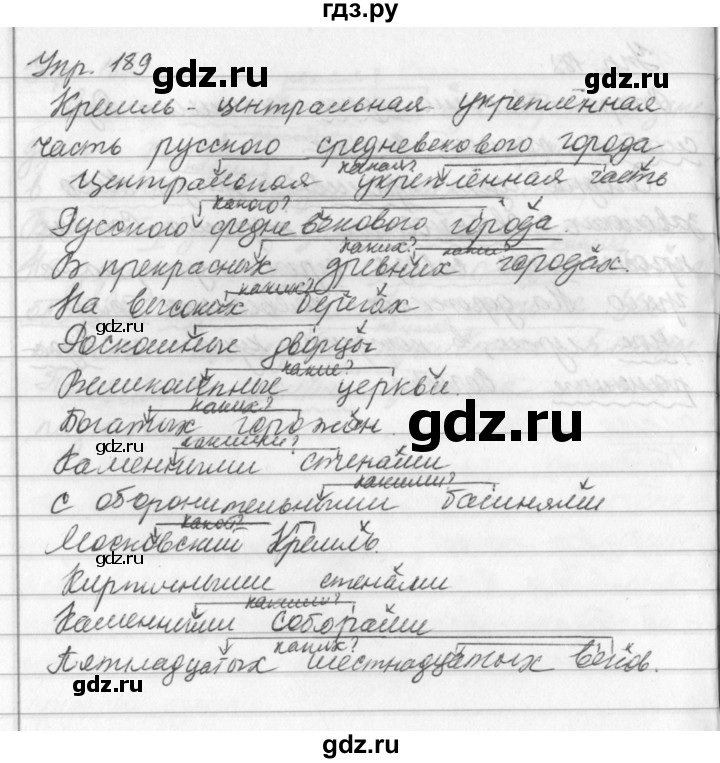 гдз.ру
Упр. 189
gdz.ru
Кремль - центральная укреплённая
часть русского средневекового города
какая?
Центральная укреплённая часть
какого?
Русского средневекового города.
каких? каких
В прекрасных древних городах.
каких?
На высоких берегах
gdz.ru
Роскошные дворцы
какие?
Великолепные церкви.
gdz.ru
каких?
Богатых горожан.
gdz.ru
какими?
Каменными стенами
какими?
с оборонительными башнями
gdz.ru
какой?
Московский Кремль.
Кирпичными стенами
gdz.ru
какими?
Каменными соборами
каких?
Пятнадцатых шестнадцатых веков.
gdz.ru
gdz.ru